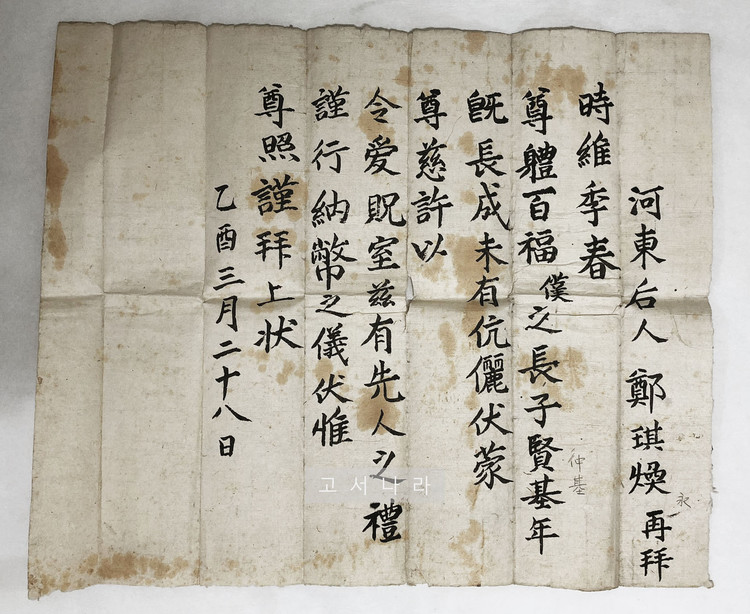 河東后人 鄭琪煥 再拜
永
時維季春
尊軆百福 僕之長子賢基年
仲基
旣長成未有伉儷伏蒙
尊慈許以
令愛貺室玆有先人之禮
謹行納幣之儀伏惟
尊照謹拜上狀
乙酉三月二十八日
고서나라